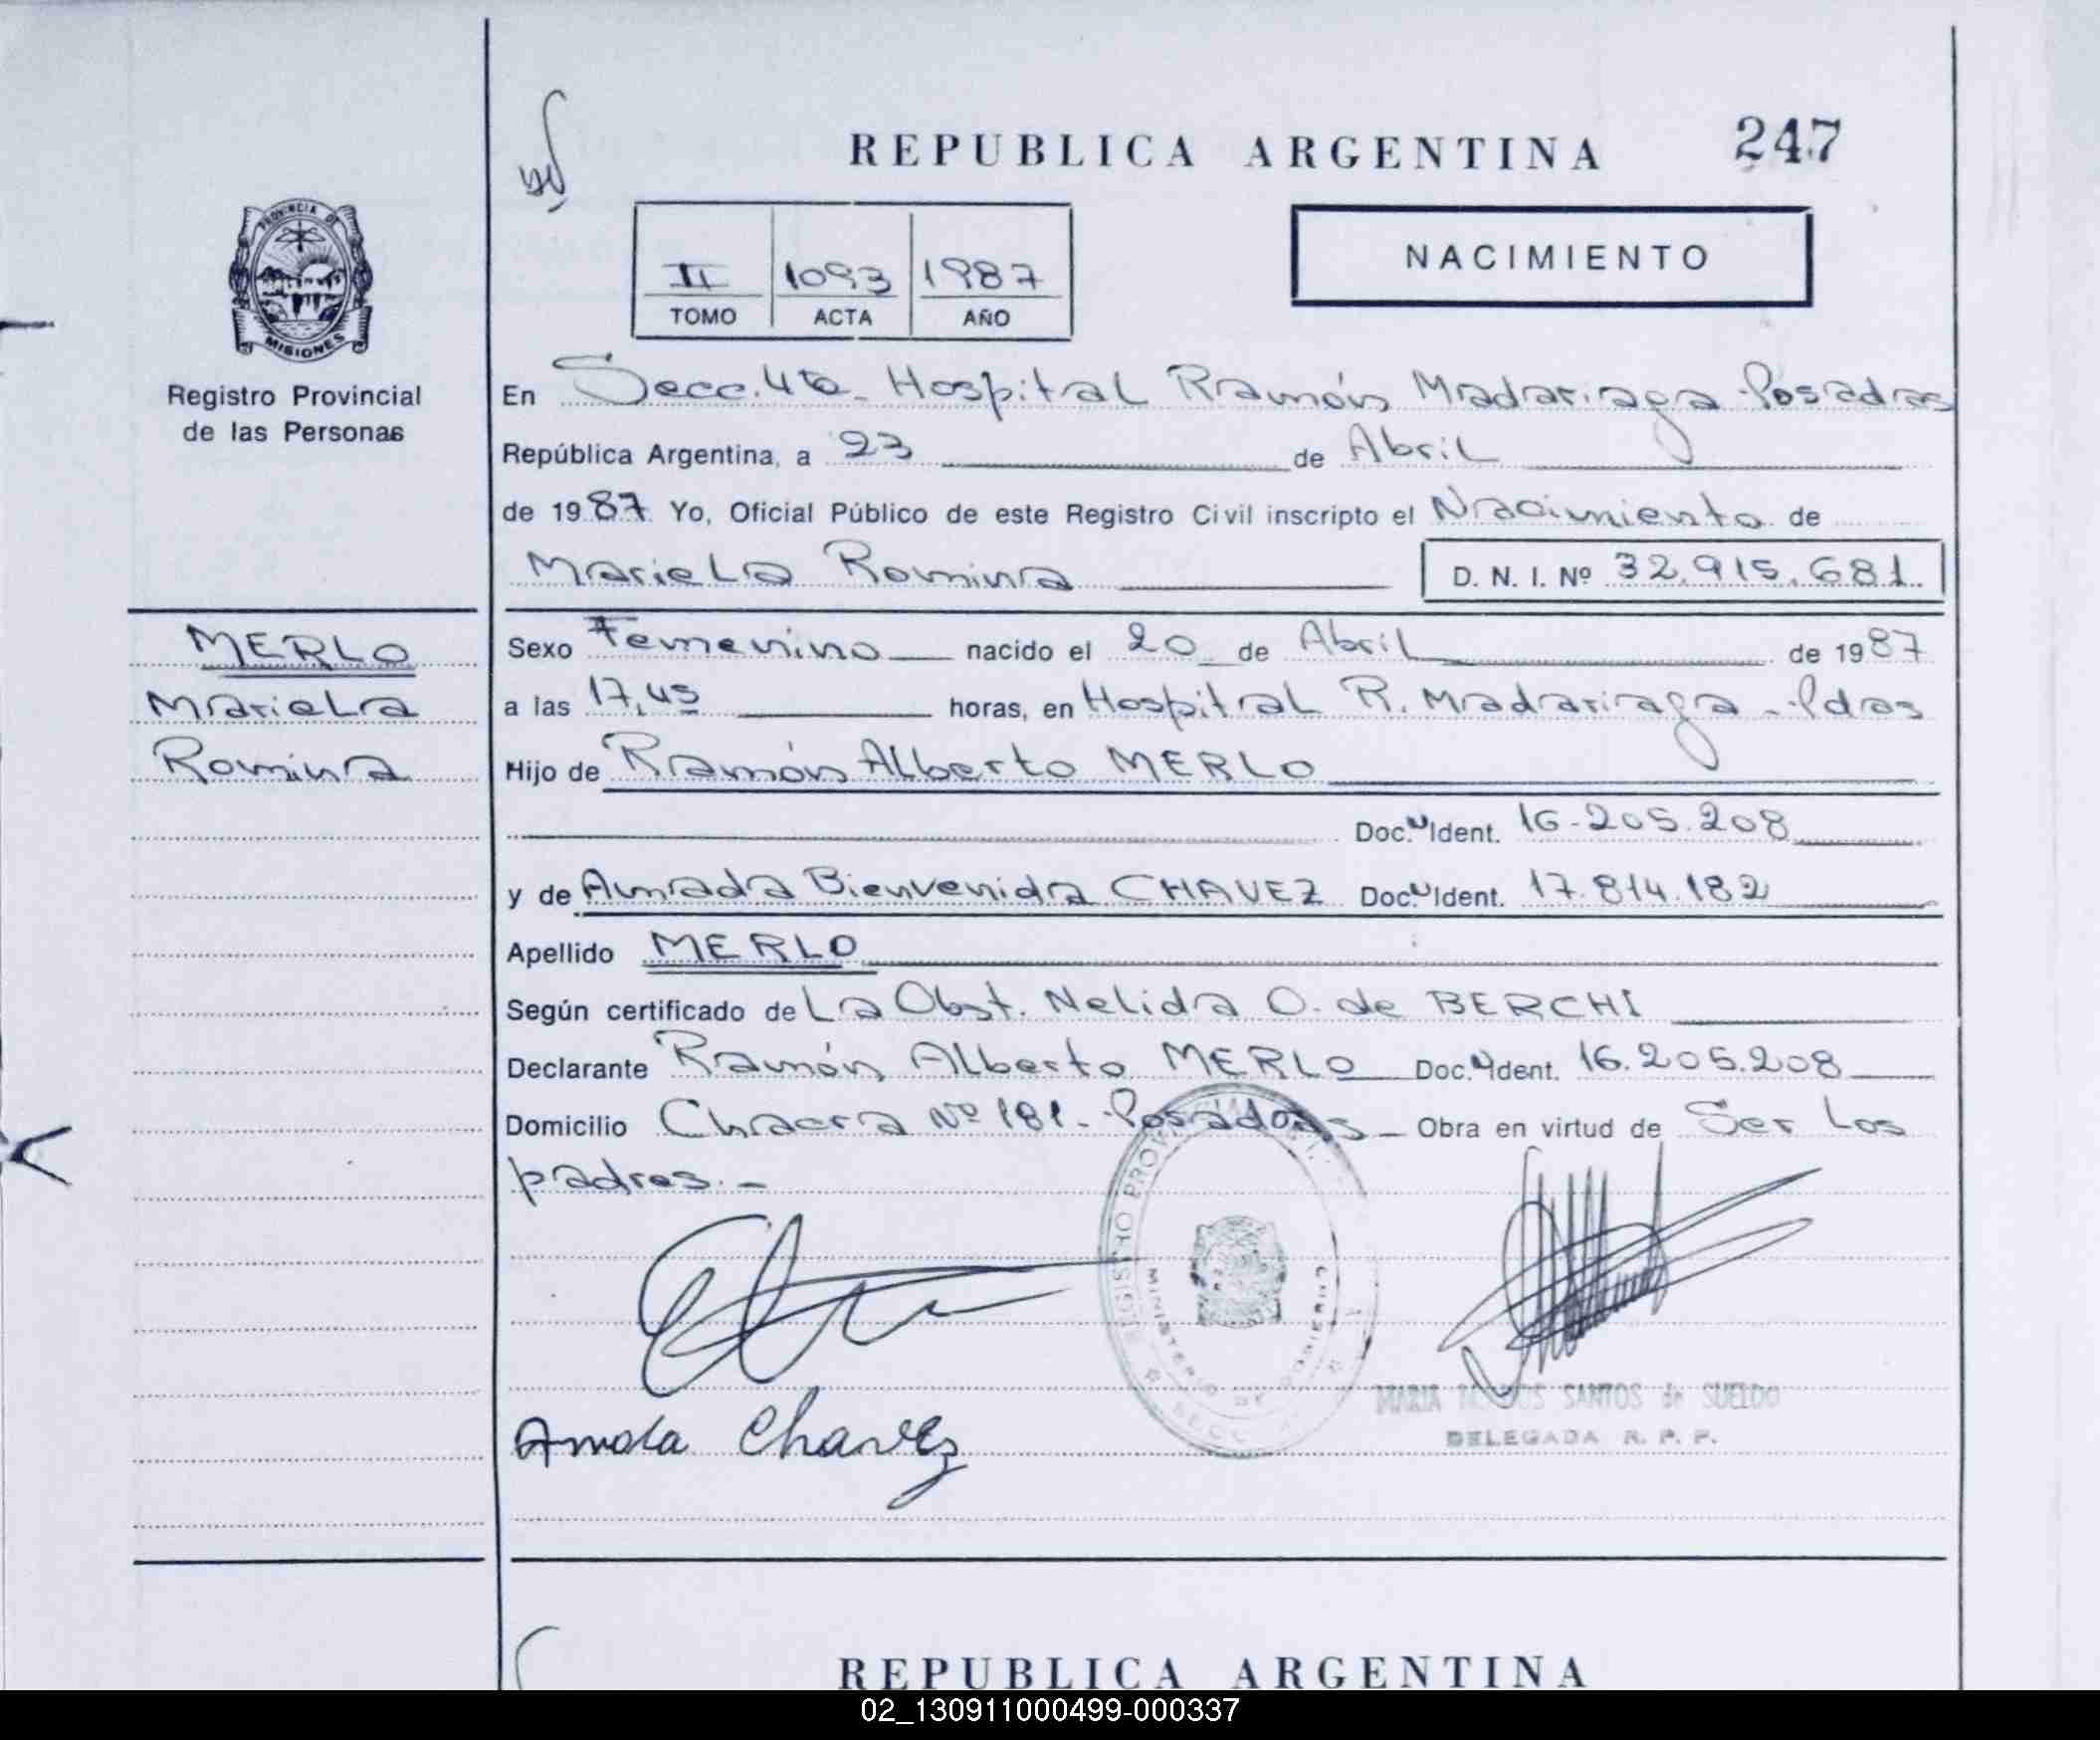 REPUBLICA ARGENTINA
247
II 1093 1987
TOMO ACTA AÑO
NACIMIENTO
PROVINCIA DE
MISIONES
Registro Provincial
de las Personas
En Secc. 4ta - Hospital Ramón Madariaga - Posadas
República Argentina, a 23 de Abril
de 1987 Yo, Oficial Público de este Registro Civil inscripto el Nacimiento de
Mariela Romina D. N. I. Nº 32.915.681
MERLO
Mariela
Romina
Sexo Femenino nacido el 20 de Abril de 1987
a las 17,45 horas, en Hospital R. Madariaga - Pdas
Hijo de Ramón Alberto MERLO
Doc. Ident. 16.205.208
y de Amada Bienvenida CHAVEZ Doc. Ident. 17.814.182
Apellido MERLO
Según certificado de La Obst. Nelida O. de BERCHI
Declarante Ramón Alberto MERLO Doc. Ident. 16.205.208
Domicilio Chacra Nº 181 - Posadas - Obra en virtud de Ser Los
padres. -
REGISTRO
MINISTERIO DE GOBIERNO
MARIA SANTOS de SUELDO
DELEGADA R. P. P.
Chavez
REPUBLICA ARGENTINA
02_130911000499-000337